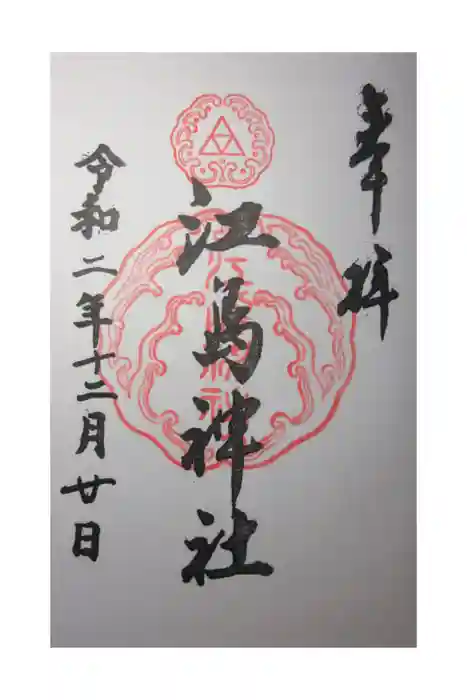 奉拝
江島神社
令和二年十二月廿日